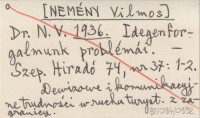 [NEMÉNY Vilmos]
Dr. N. V. 1936. Idegenfor-
galmunk problémái –
Szep. Hiradó 74, nr 37: 1-2.
Dewizowe i komunikacyj-
ne trudności w ruchu turyst. z za-
granicą.